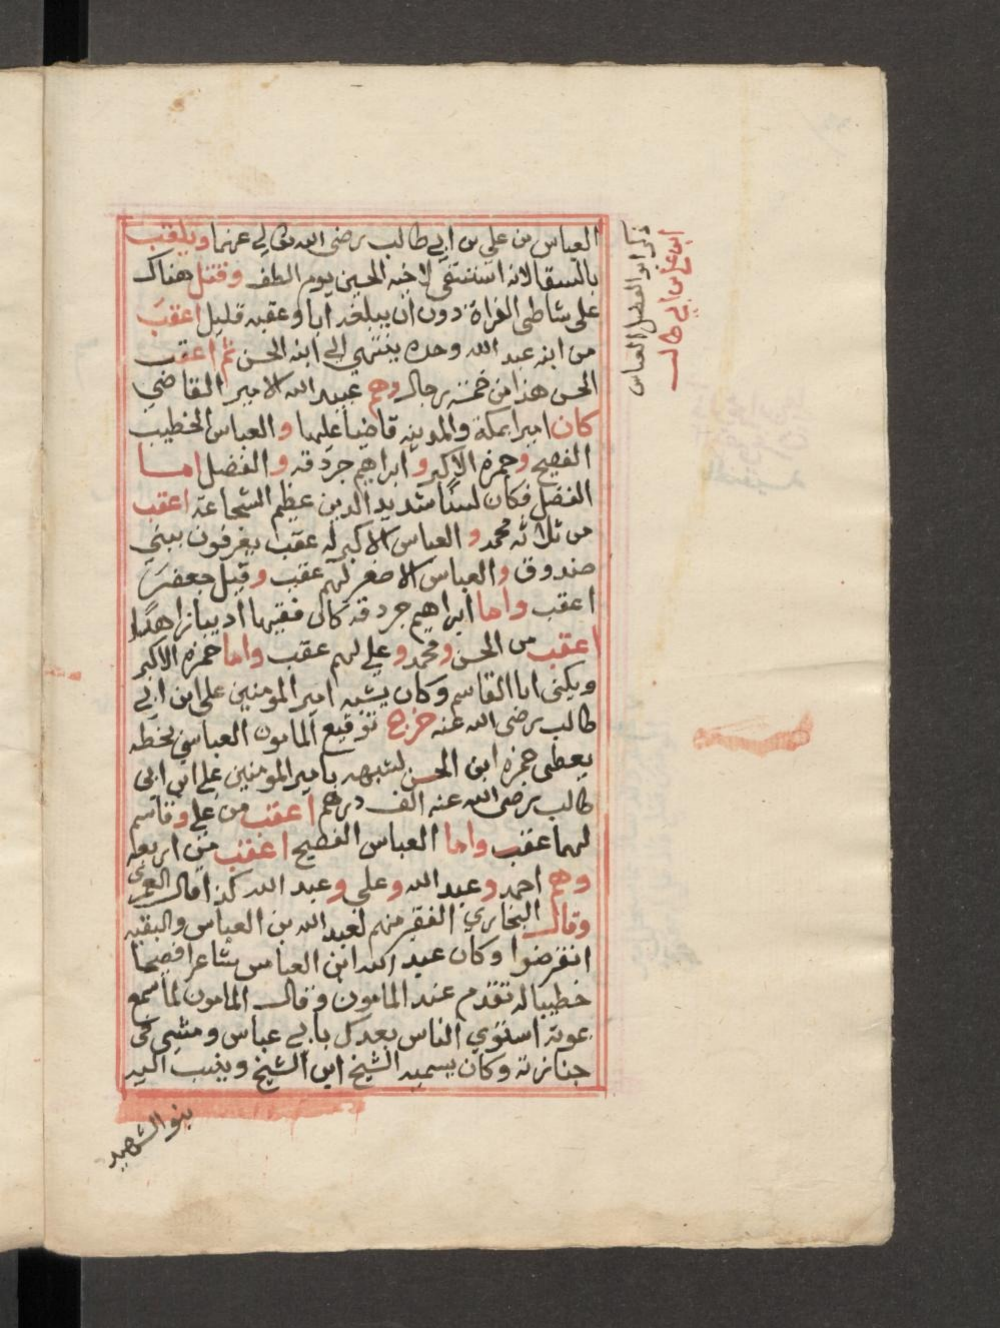 العباس بن علي بن ابي طالب رضي الله تعالي عنهما ويلقب
بالسقا لانه استسقي لاخيه الحسين يوم الطف وقتل هناك
علي شاطي الفراة دون ان يبلغه اياه وعقبه قليل اعقب
من ابنه عبيد الله وحده ينتهي الي ابنه الحسن ثم اعقب
الحسن هذا من خمسة رجال وهم عبيد الله الامير القاضي
كان اميرا بمكة والمدينه قاضيا عليهما والعباس الخطيب
الفصيح وحمزه الاكبر وابراهيم جردقه والفضل اما
الفضل فكان لسنا شديد الدين عظيم الشجاعة اعقب
من ثلاثه محمد والعباس الاكبر له عقب يعرفون ببني
صندوق والعباس الاصغر لهم عقب وقيل جعفر
اعقب واما ابراهيم جردقه كان فقيها اديبا زاهدا
اعقب من الحسن ومحمد وعلي لهم عقب واما حمزه الاكبر
ويكني ابا القاسم وكان يشبه امير المومنين علي ابن ابي
طالب رضي الله عنه خرج توقيع المامون العباسي بخطه
يعطي حمزه ابن الحسن لشبهه بامير المومنين علي ابن ابي
طالب رضي الله عنه الف درهم اعقب من علي وقاسم
لهما عقب واما العباس الفصيح اعقب من اربعه
وهم احمد وعبيد الله وعلي وعبد الله كذا قال العمري
وقال البخاري الفقير منهم لعبد الله بن العباس والبقيه
انقرضوا وكان عبد الله ابن العباس شاعرا فصيحا
خطيبا له تقدم عند المامون وقال المامون لما سمع
بموته استوي الناس بعدك يا ابن عباس ومشي في
جنازته وكان يسميه الشيخ ابن الشيخ وينسب اليه
بنو الشهيد
ذكر ابو الفضل العباس
ابن علي ابن ابي طالب